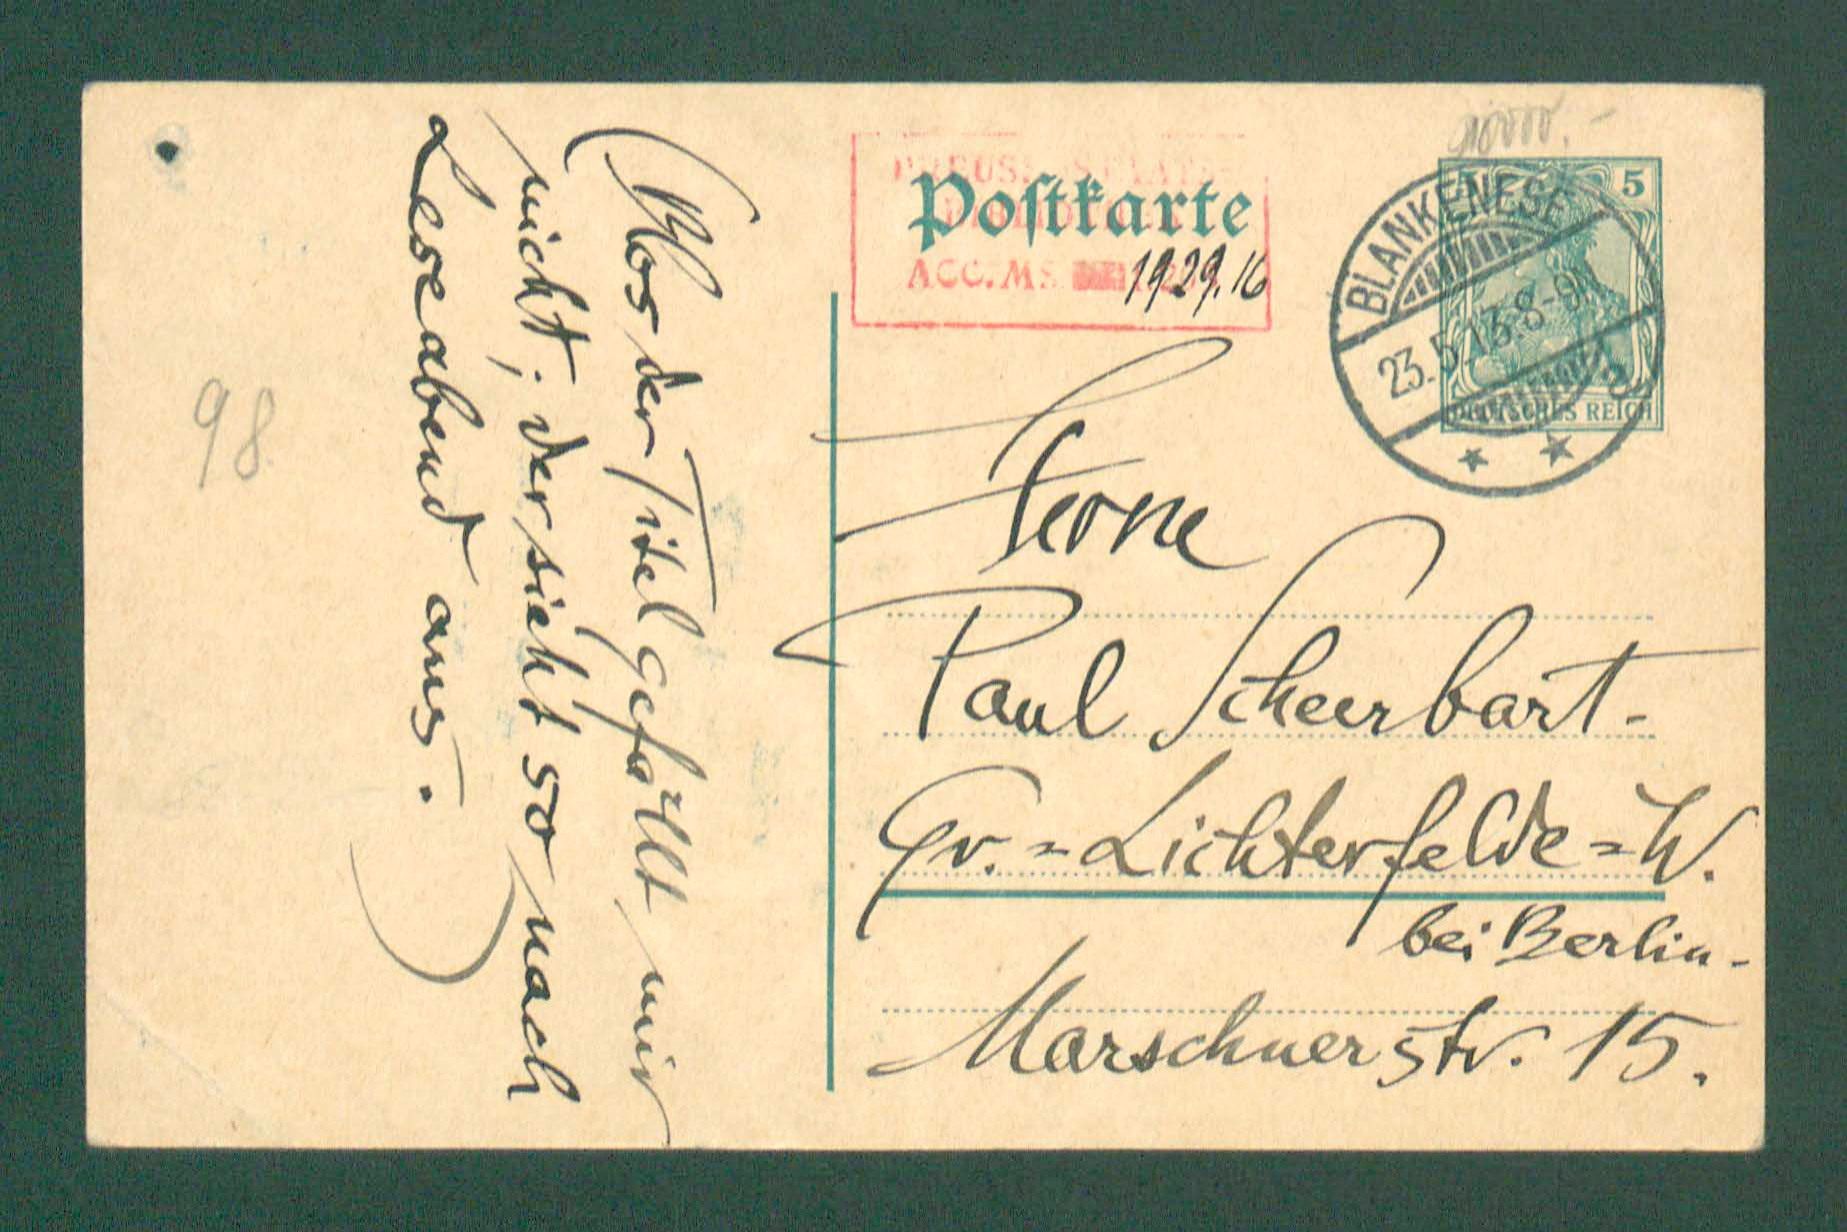 (Blos der Titel gefällt mir
nicht; der sieht so nach
Leseabend aus.)
98
PREUSS. STAATS-
Postkarte
ACC. MS. 1929.16
BLANKENESE
23.5.13.8-9
5
DEUTSCHES REICH
Herrn
Paul Scheerbart.
Gr.=Lichterfelde=W.
bei Berlin.
Marschnerstr. 15.